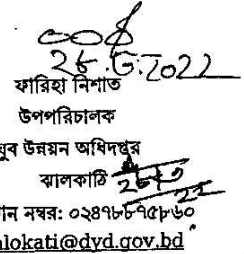 ২৮.৫.২০২২
ফারিহা নিশাত
উপপরিচালক
যুব উন্নয়ন অধিদপ্তর
ঝালকাঠি
ান নম্বর: ০২৪৭৮৮৭৫৮৬০
alokati@dyd.gov.bd